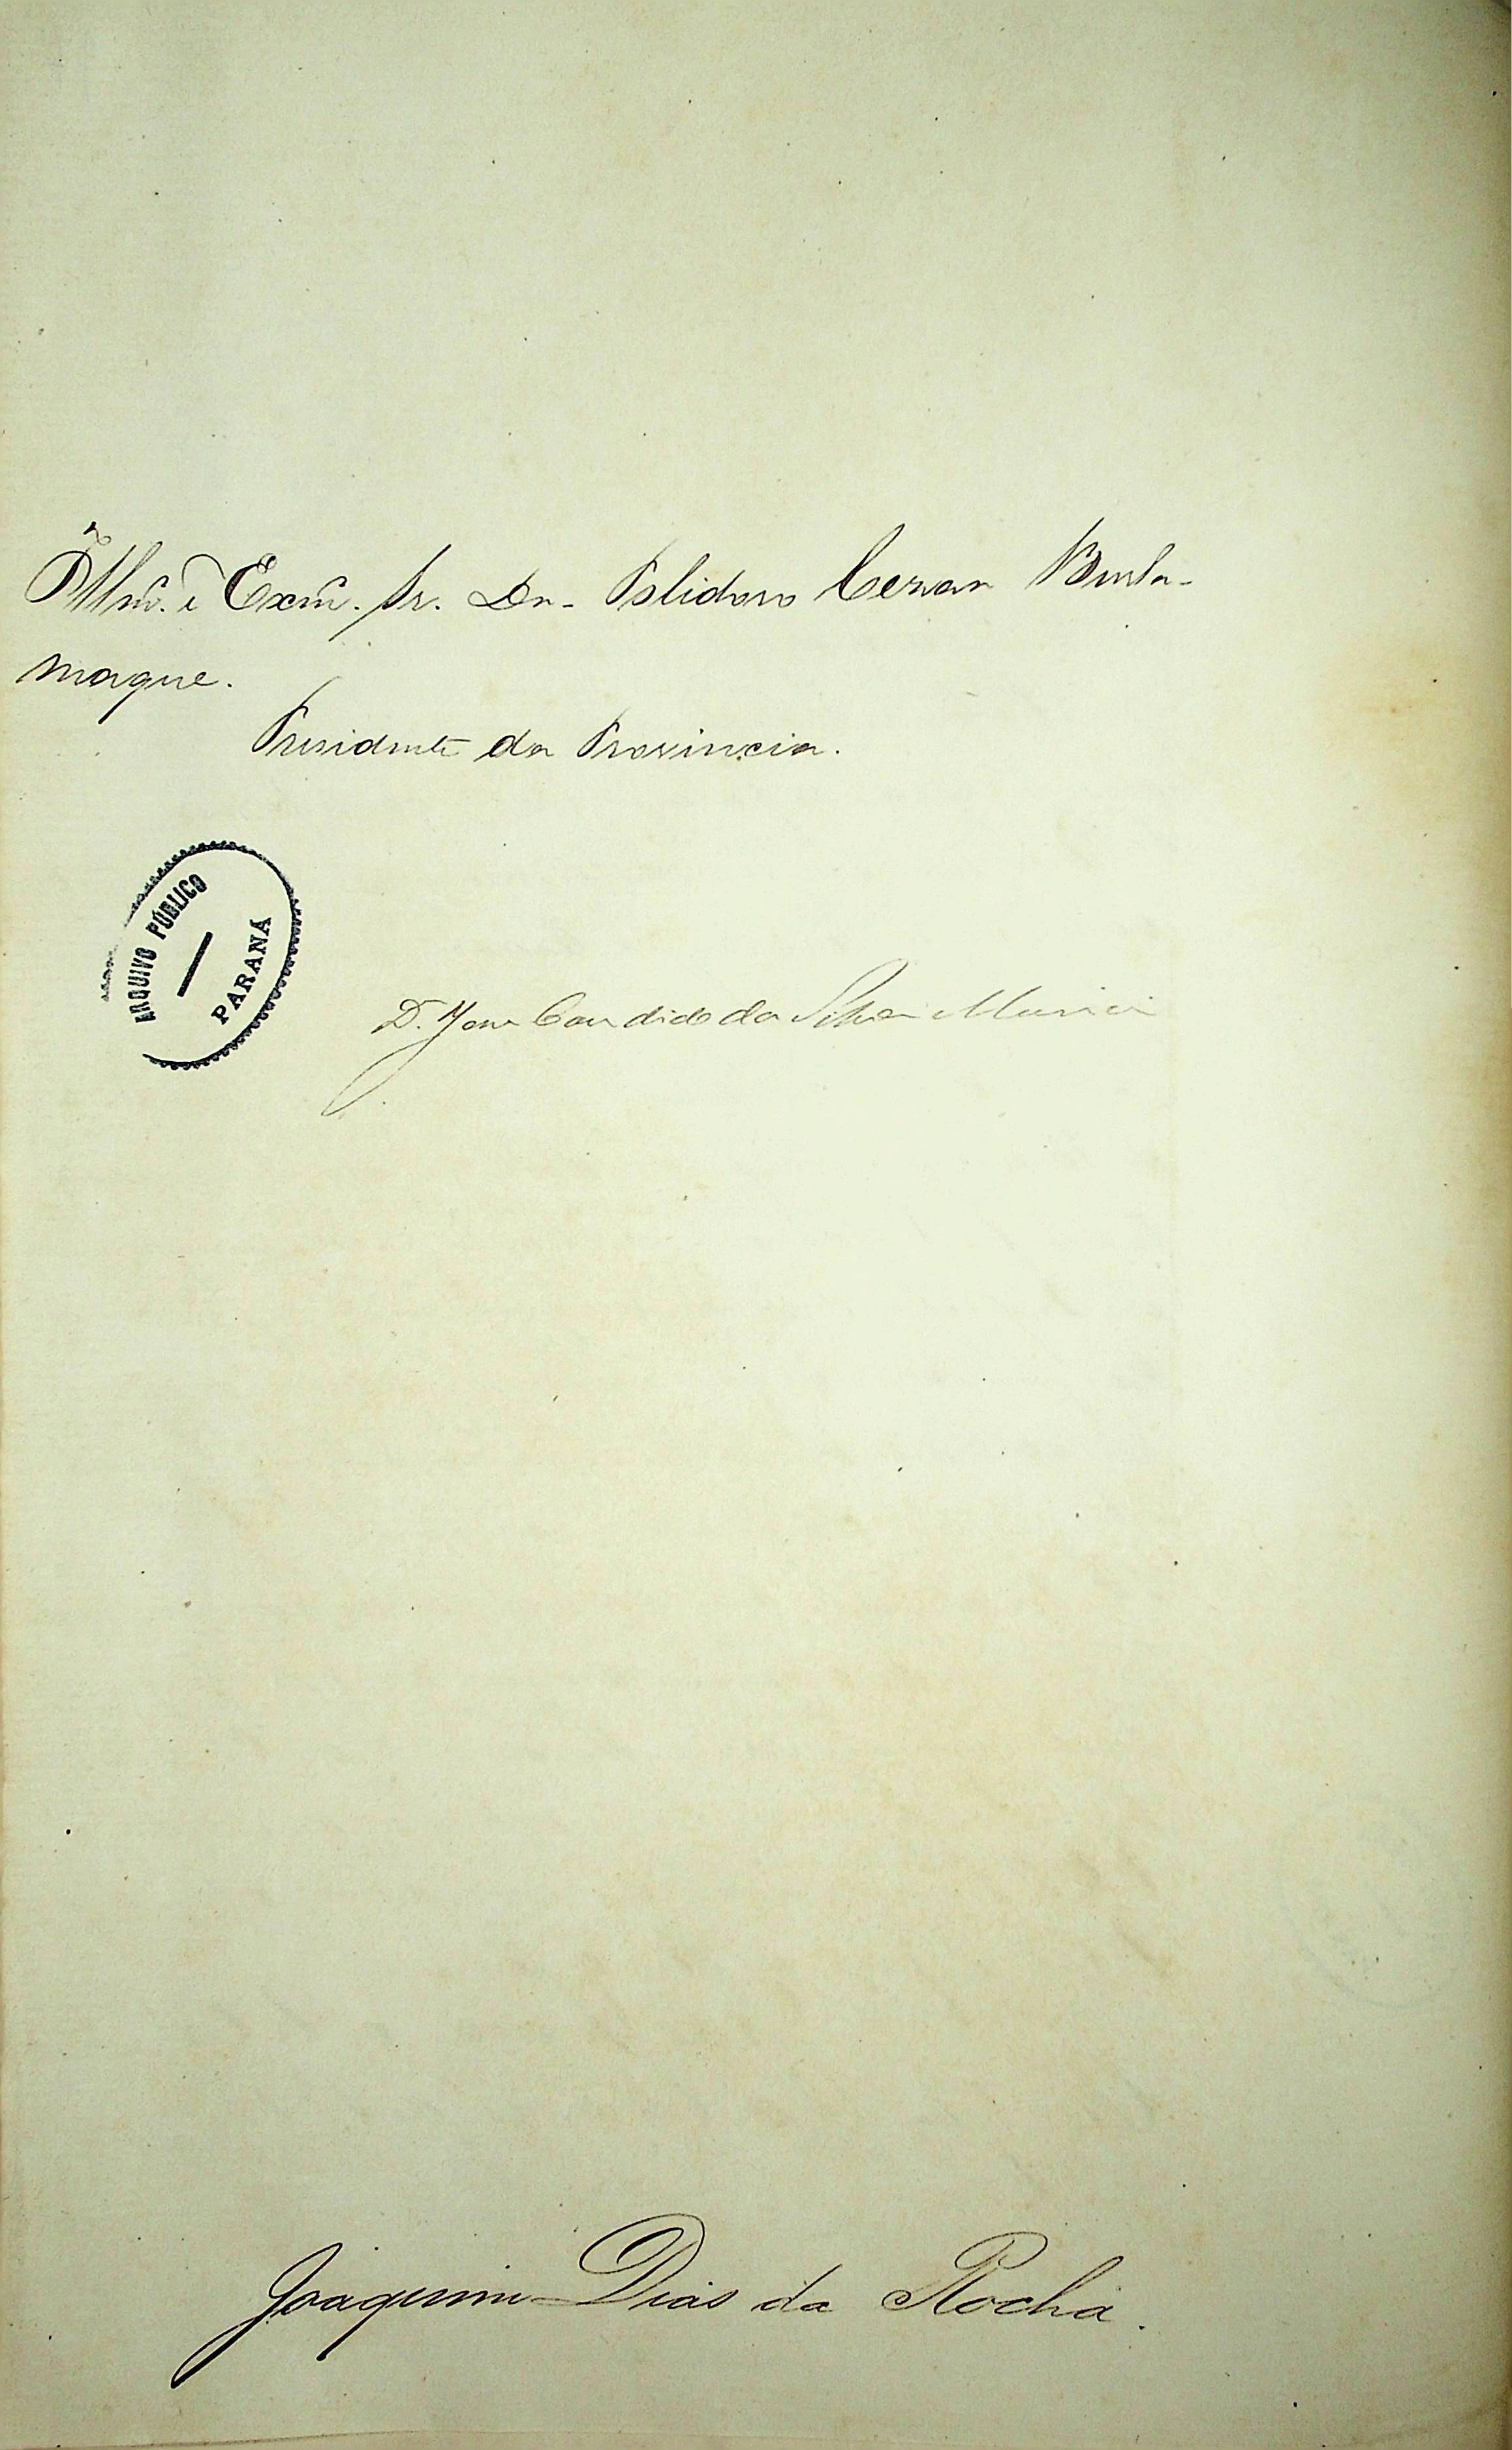 Illm. e Exm. Sr. Dr. Polidoro Cezar Burla-
maque.
Presidente da Provincia.
ARQUIVO PÚBLICO
PARANÁ
D. Jose Candido da Silva Murici
Joaquim Dias da Rocha.